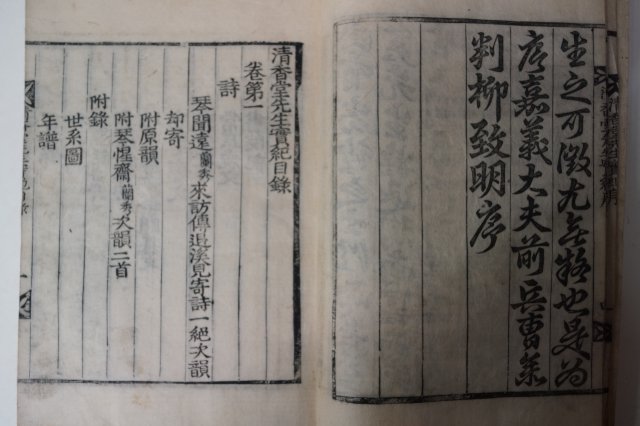 生之可徵尤無務也是為
序嘉義大夫前兵曹參
判柳致明序
清香堂先生實紀目錄
卷第一
詩
琴聞遠蘭秀來訪傳退溪見寄詩一絕次韻
却寄
附原韻
附琴惺齋蘭秀次韻二首
附錄
世系圖
年譜